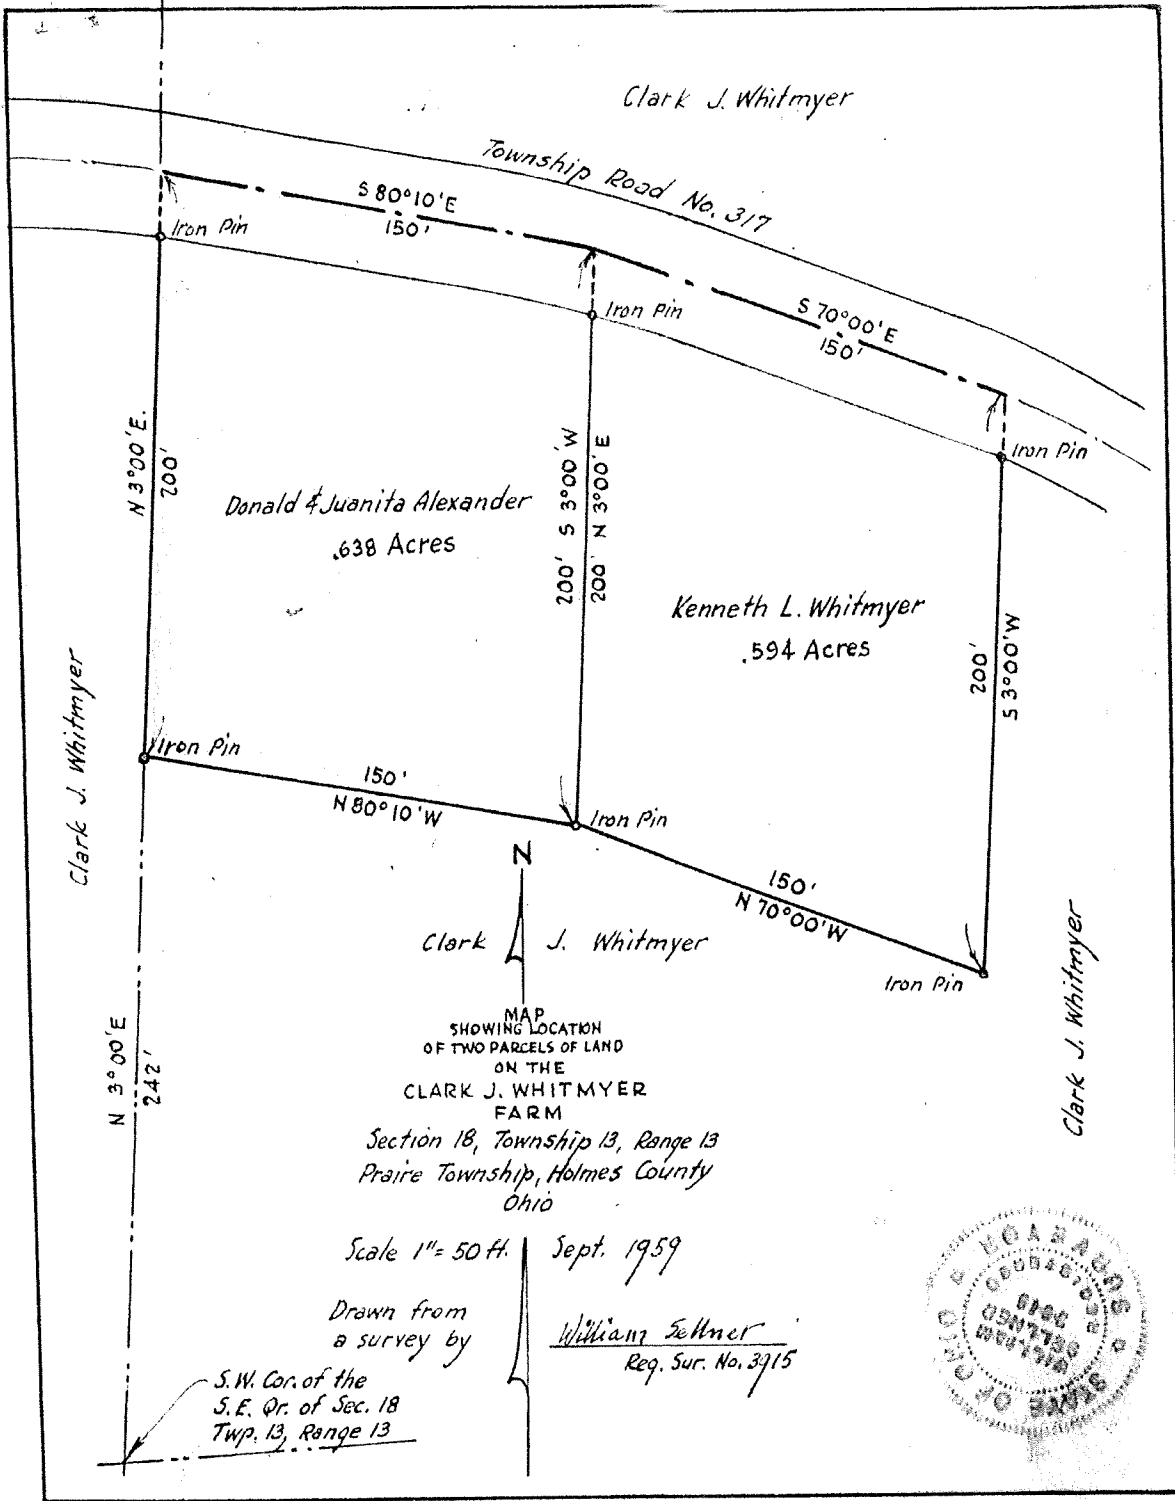 Clark J. Whitmyer
Township Road No. 317
S 80°10'E
150'
Iron Pin
Iron Pin
S 70°00'E
150'
Iron Pin
N 3°00'E.
200'
Donald & Juanita Alexander
.638 Acres
200' S 3°00'W
200' N 3°00'E
Kenneth L. Whitmyer
.594 Acres
200'
S 3°00'W
Clark J. Whitmyer
Iron Pin
150'
N 80°10'W
Iron Pin
150'
N 70°00'W
Iron Pin
N
Clark J. Whitmyer
Clark J. Whitmyer
N 3°00'E
242'
MAP
SHOWING LOCATION
OF TWO PARCELS OF LAND
ON THE
CLARK J. WHITMYER
FARM
Section 18, Township 13, Range 13
Praire Township, Holmes County
Ohio
Scale 1"= 50 ft. Sept. 1959
Drawn from
a survey by
William Sellner
Reg. Sur. No. 3915
S.W. Cor. of the
S.E. Qr. of Sec. 18
Twp. 13, Range 13
STATE OF OHIO